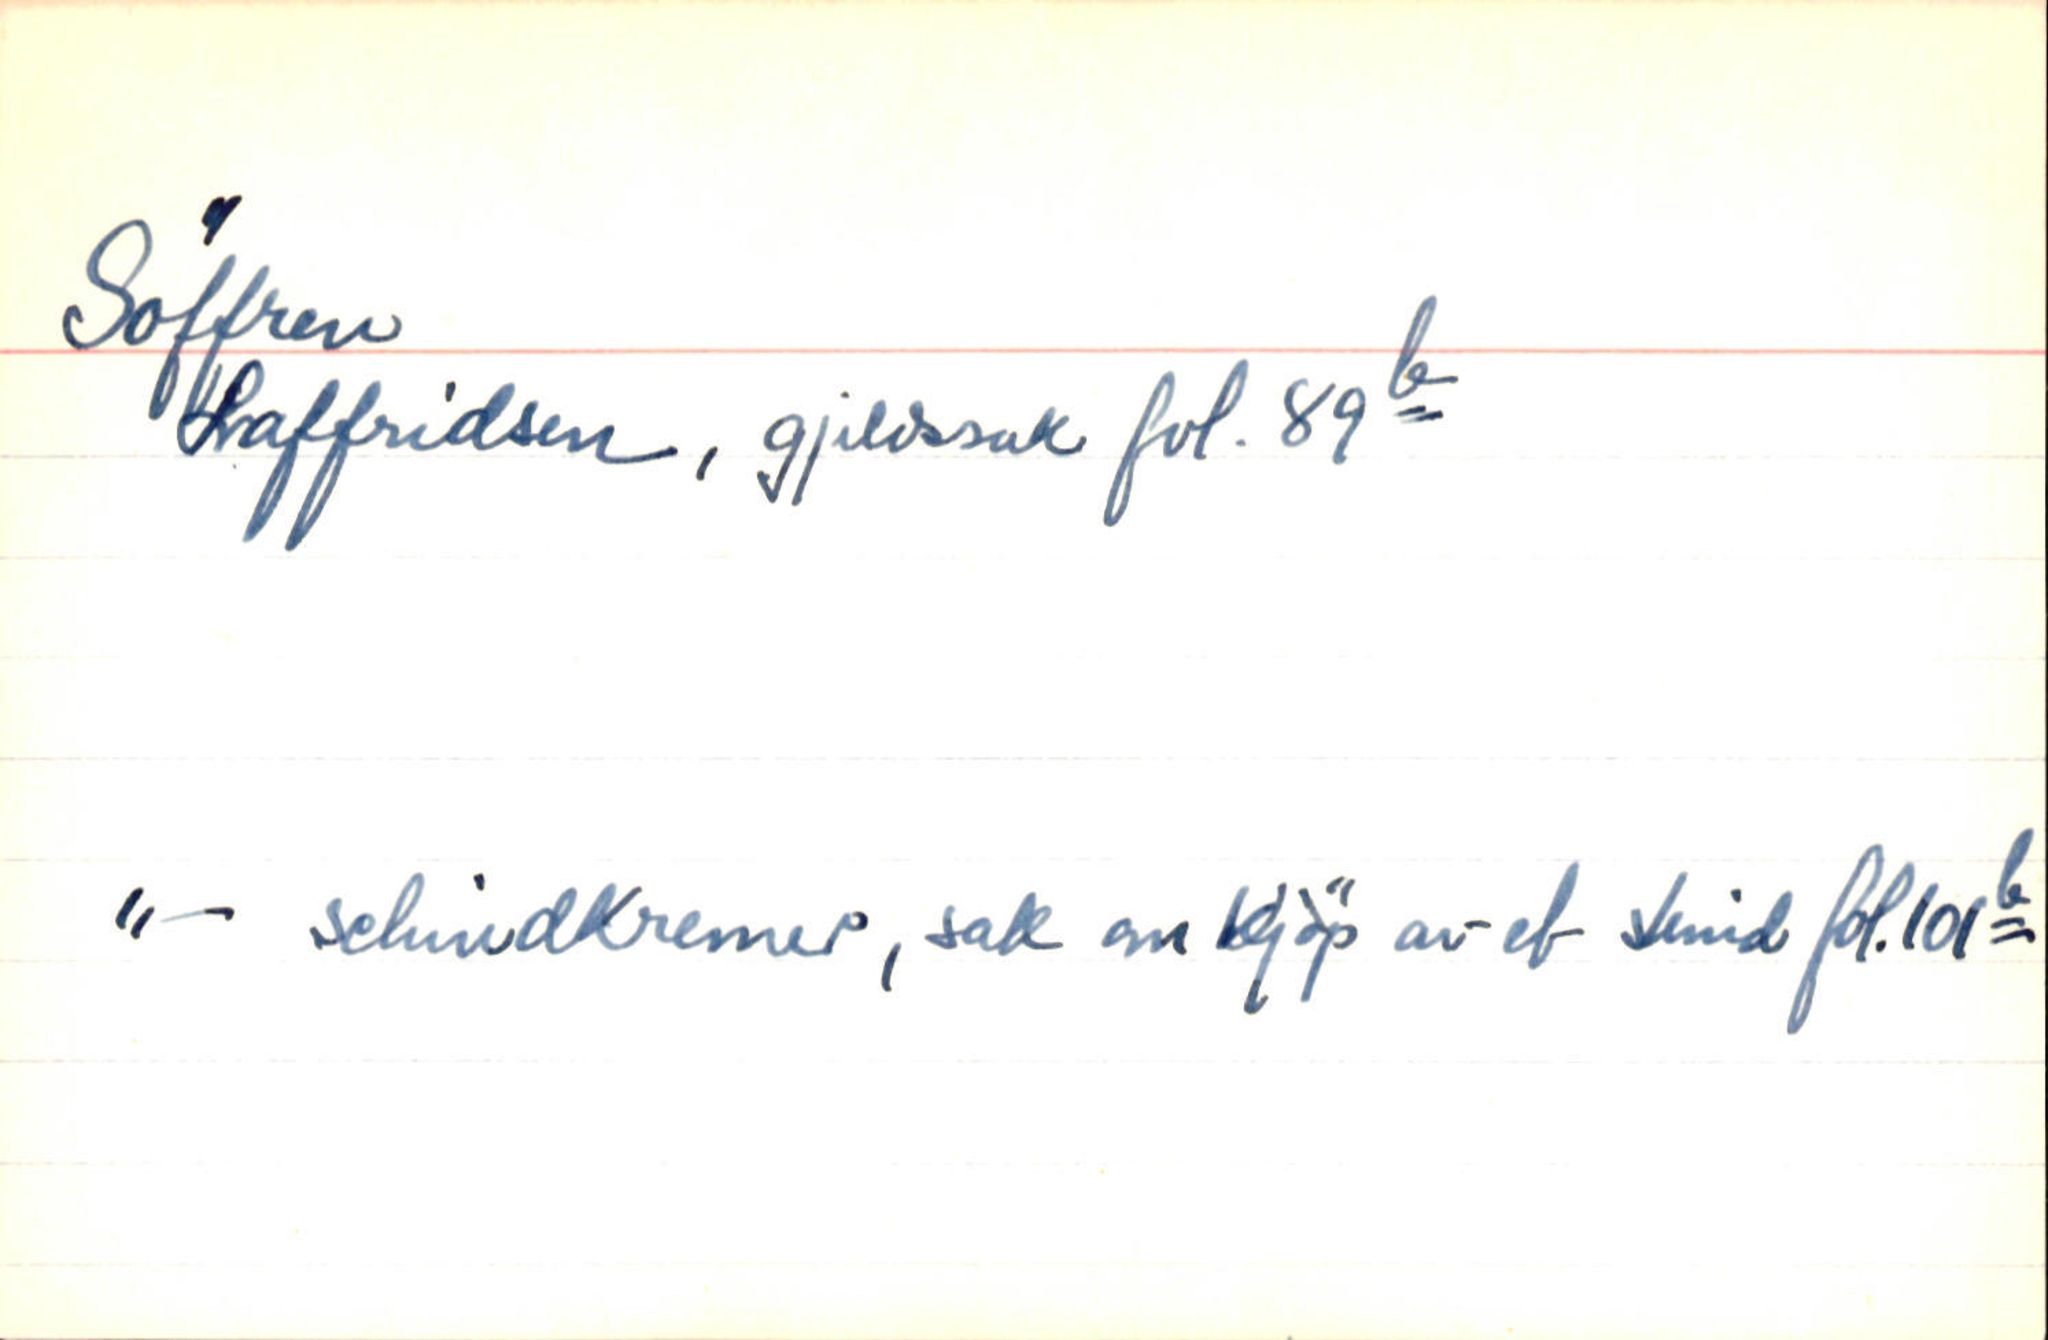 Söffren
Laffridsen, gjeldssak fol. 89 b
"— schindkremer, sak om kjöp av et skind fol. 101 b